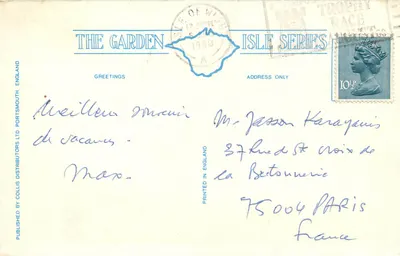 THE GARDEN ISLE SERIES
GREETINGS
ADDRESS ONLY
TROPHY
RACE
1980
10½P
Meilleur souvenir
de vacances -
Max -
M. Jasson Karayanis
37 Rue de St Croix de
la Bretonnerie
75004 PARIS
France
PUBLISHED BY COLLIS DISTRIBUTORS LTD. PORTSMOUTH ENGLAND
PRINTED IN ENGLAND